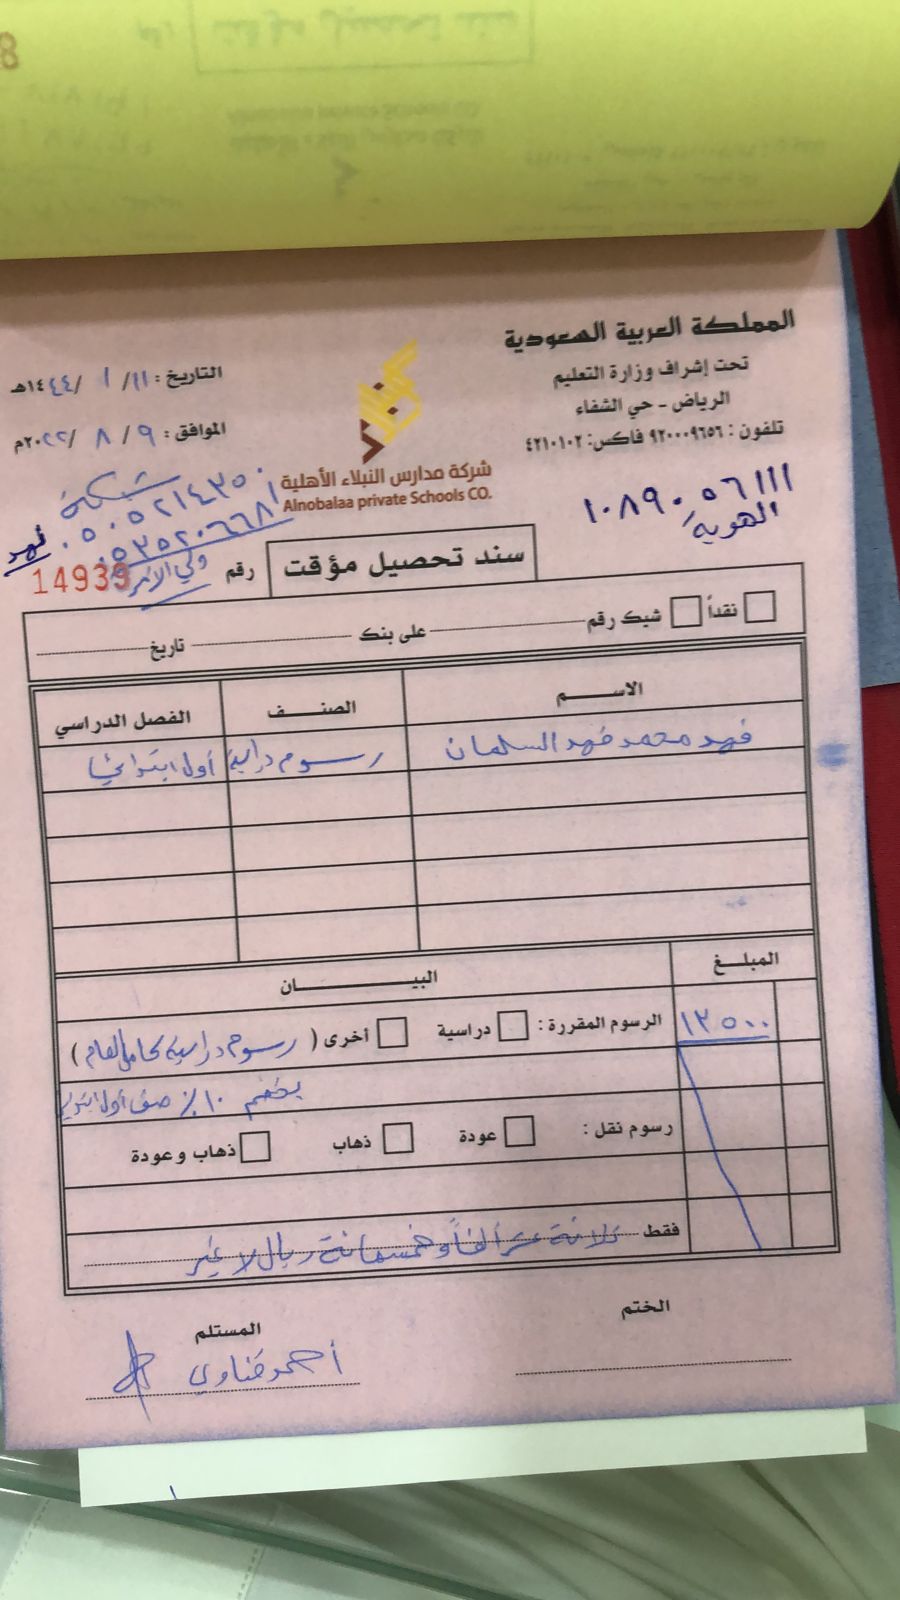 المملكة العربية السعودية
تحت إشراف وزارة التعليم
الرياض - حي الشفاء
تلفون : ٩٢٠٠٠٩٦٥٦ فاكس: ٤٢١٠١٠٢
التاريخ : ١١ / ١ / ١٤٤٤هـ
الموافق : ٩ / ٨ / ٢٠٢٢م
شركة مدارس النبلاء الأهلية
Alnobalaa private Schools CO.
١٠٨٩٠٥٦١١١
الهوية
شبكة
٠٥٠٥٢١٤٣٥٠ فهد
٠٥٣٥٢٠٦٦٨١
ولي الأمر
سند تحصيل مؤقت
رقم 14939
نقداً شيك رقم على بنك تاريخ
الاسم الصنف الفصل الدراسي
فهد محمد فهد السلمان رسوم دراسية أول ابتدائي
المبلغ البيان
١٣٥٠٠ الرسوم المقررة : دراسية أخرى ( رسوم دراسية كامل العام )
بخصم ١٠٪ صف أول ابتدائي
رسوم نقل : عودة ذهاب ذهاب وعودة
فقط ثلاثة عشر ألفاً وخمسمائة ريال لا غير
الختم المستلم
أحمد قناوي